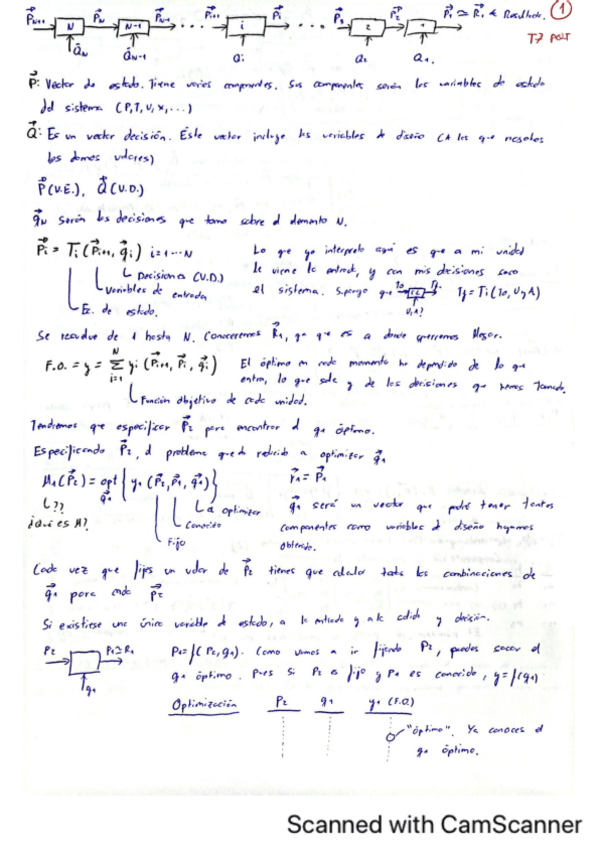 P⃗N+1 → N → P⃗N → N-1 → P⃗N-1 → ... → P⃗i+1 → i → P⃗i → ... → P⃗3 → 2 → P⃗2 → 1 → P⃗1 ≃ R⃗1 Resultado. ①
Q⃗N Q⃗N-1 Qi Q2 Q1. T7
P⃗: Vector de estado. Tiene varios componentes. Sus componentes serán las variables de estado
del sistema (P,T,V,X,...)
Q⃗: Es un vector decisión. Este vector incluye las variables de diseño (A las que nosotros
les damos valores)
P⃗(V.E.), Q⃗(V.D.)
q⃗N serán las decisiones que tomo sobre el elemento N.
P⃗i = Ti(P⃗i+1, q⃗i) i=1...N Lo que yo interpreto aquí es que a mi unidad
Decisiones (V.D.) le viene la entrada, y con mis decisiones saco
Variables de entrada el sistema. Supongo que Tf = Ti(To, U y A)
Ec. de estado. U,A?
Se resuelve de 1 hasta N. Conoceremos R⃗1, ya que es a donde queremos llegar.
F.O. = y = Σ yi (P⃗i+1, P⃗i, q⃗i) El óptimo en cada momento ha dependido de lo que
entra, lo que sale y de las decisiones que hemos tomado.
Función objetivo de cada unidad.
Tendremos que especificar P⃗2 para encontrar el q1 óptimo.
Especificando P⃗2, el problema queda reducido a optimizar q⃗1
M1(P⃗2) = opt { y1 (P⃗2, P⃗1, q⃗1) } r⃗1 = P⃗1
q⃗1
↳ ?? La optimizar q⃗1 será un vector que podrá tener tantos
¿Qué es M? Conocido componentes como variables de diseño hayamos
Fijo obtenido.
Cada vez que fijes un valor de P⃗2 tienes que calcular todas las combinaciones de
q⃗1 para cada P⃗2
Si existiese una única variable de estado, a la entrada y a la salida y decisión.
P2 → P1≃R1 P1 = f(P2, q1). Como vamos a ir fijando P2, puedes sacar el
q1 q1 óptimo. Pues si P2 es fijo y P1 es conocido, y = f(q1)
Optimización P2 q1 y1 (F.O)
"óptimo". Ya conoces el
q1 óptimo.
Scanned with CamScanner